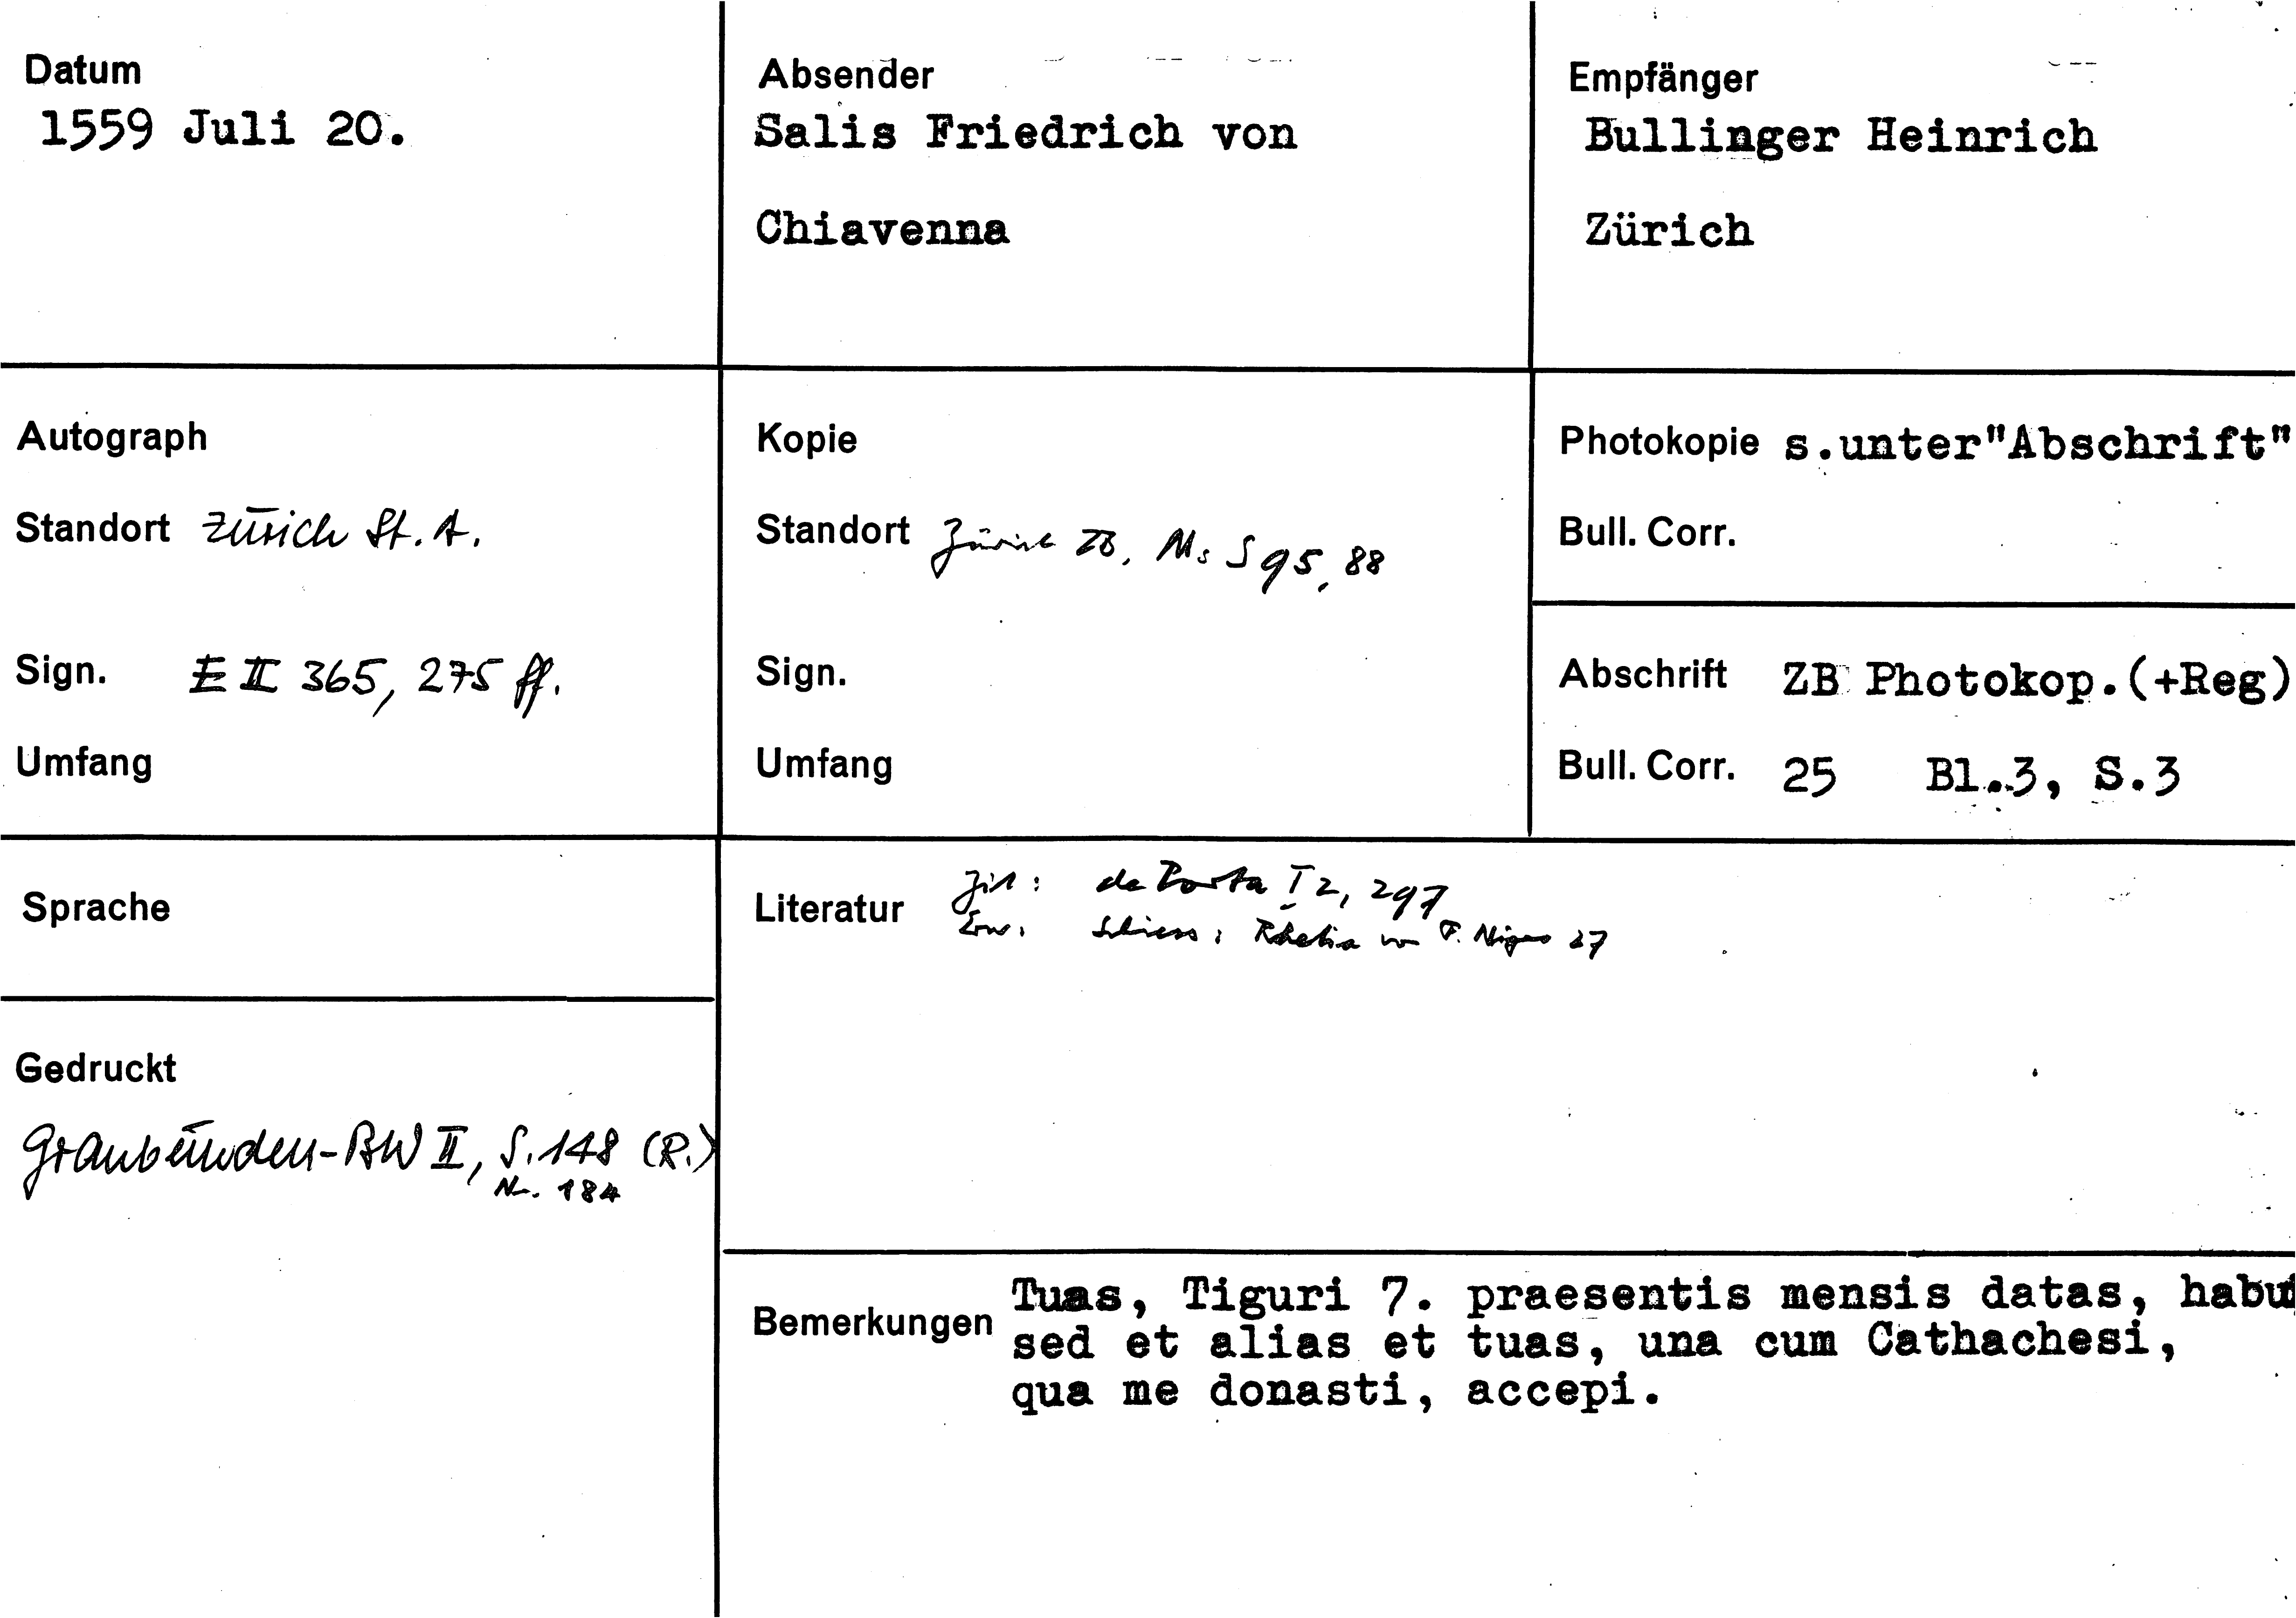 Datum
1559 Juli 20.
Absender
Salis Friedrich von
Chiavenna
Empfänger
Bullinger Heinrich
Zürich
Autograph
Standort Zürich St. A.
Sign. E II 365, 275 ff.
Umfang
Kopie
Standort Zürich ZB, Ms S 95, 88
Sign.
Umfang
Photokopie s.unter"Abschrift"
Bull. Corr.
Abschrift ZB Photokop.(+Reg)
Bull. Corr. 25 Bl.3, S.3
Sprache
Gedruckt
Graubünden-BW II, S. 148 (R.)
Nr. 184
Literatur Zit: de Porta I 2, 297
Erw. Schiess: Rhetia von F. Niger 27
Bemerkungen Tuas, Tiguri 7. praesentis mensis datas,
sed et alias et tuas, una cum Cathachesi,
qua me donasti, accepi.